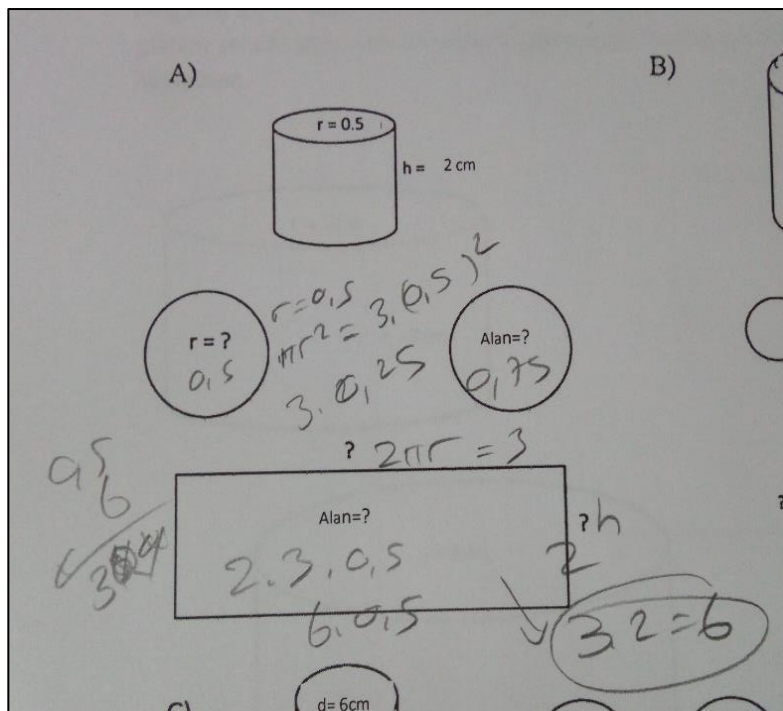 A)
B)
r = 0.5
h = 2 cm
r = 0,5
πr² = 3.(0,5)²
3.0,25
r = ?
0,5
Alan=?
0,75
? 2πr = 3
Alan=?
2.3.0,5
6.0,5
? h
2
3.2=6
C)
d= 6cm